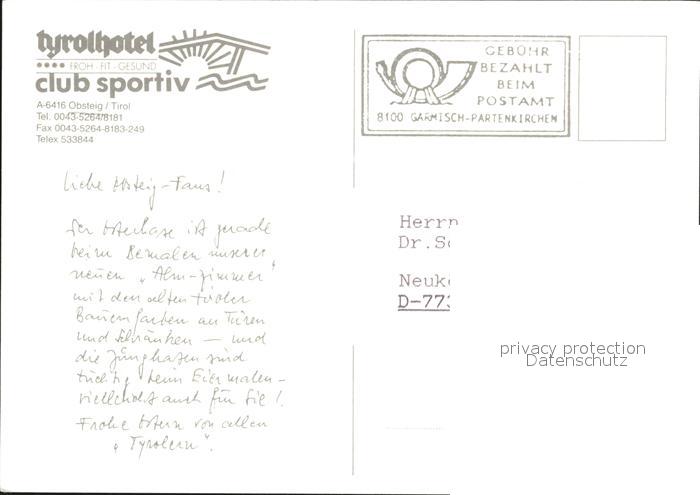 tyrolhotel
FROH - FIT - GESUND
club sportiv
A-6416 Obsteig / Tirol
Tel. 0043-5264/8181
Fax 0043-5264-8183-249
Telex 533844
GEBÜHR
BEZAHLT
BEIM
POSTAMT
8100 GARMISCH-PARTENKIRCHEN
Liebe Obsteig-Fans!
Der Osterhase ist gerade
beim Bemalen unserer
neuen „Alm-Zimmer"
mit den alten Tiroler
Bauernfarben an Türen
und Schränken — und
die Junghasen sind
tüchtig beim Eiermalen -
vielleicht auch für Sie!
Frohe Ostern von allen
„Tyrolern".
Herrn
Dr.
D-77
privacy protection
Datenschutz